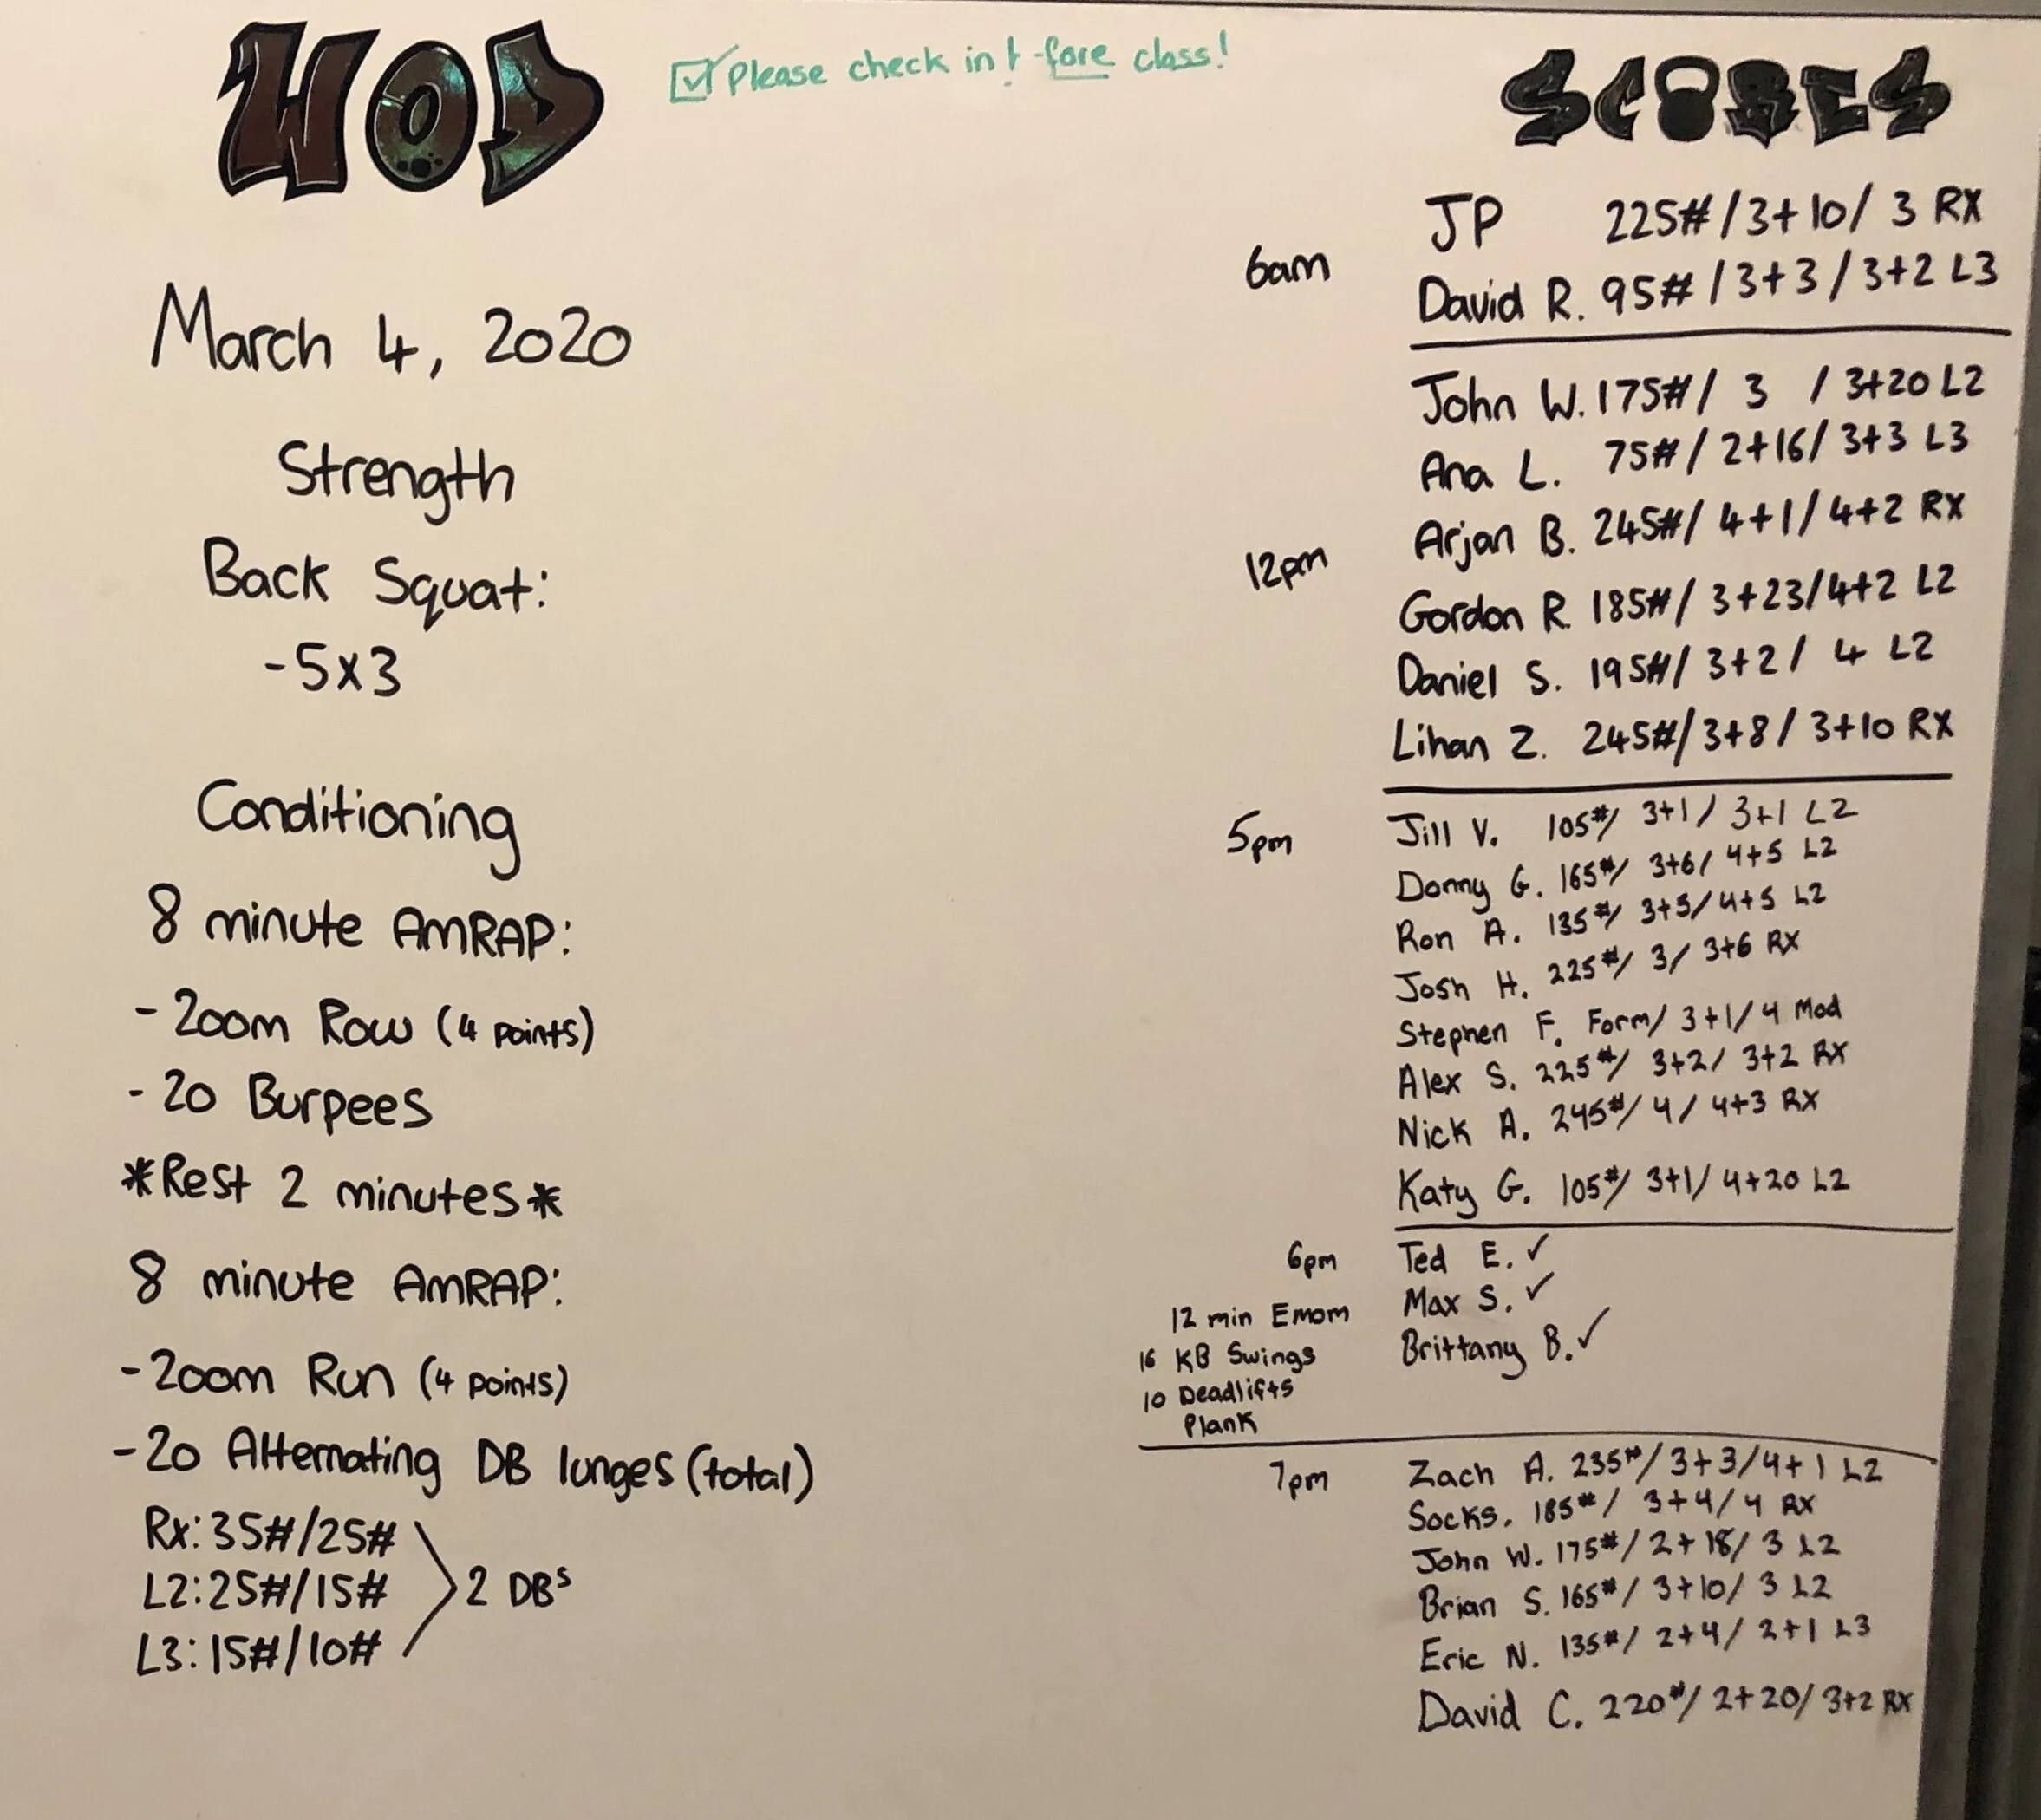 WOD
Please check in -fore class!
March 4, 2020
Strength
Back Squat:
-5x3
Conditioning
8 minute AMRAP:
- 200m Row (4 points)
- 20 Burpees
*Rest 2 minutes*
8 minute AMRAP:
- 200m Run (4 points)
- 20 Alternating DB lunges (total)
Rx: 35#/25#
L2: 25#/15#
L3: 15#/10#
2 DBs
SCORES
6am
JP 225# / 3+10 / 3 RX
David R. 95# / 3+3 / 3+2 L3
12pm
John W. 175# / 3 / 3+20 L2
Ana L. 75# / 2+16 / 3+3 L3
Arjan B. 245# / 4+1 / 4+2 RX
Gordon R. 185# / 3+23 / 4+2 L2
Daniel S. 195# / 3+2 / 4 L2
Lihan Z. 245# / 3+8 / 3+10 RX
5pm
Jill V. 105# / 3+1 / 3+1 L2
Donny G. 165# / 3+6 / 4+5 L2
Ron A. 135# / 3+5 / 4+5 L2
Josh H. 225# / 3 / 3+6 RX
Stephen F. Form / 3+1 / 4 Mod
Alex S. 225# / 3+2 / 3+2 RX
Nick A. 245# / 4 / 4+3 RX
Katy G. 105# / 3+1 / 4+20 L2
6pm
12 min Emom
16 KB Swings
10 Deadlifts
Plank
Ted E. ✓
Max S. ✓
Brittany B. ✓
7pm
Zach A. 235# / 3+3 / 4+1 L2
Socks. 185# / 3+4 / 4 RX
John W. 175# / 2+18 / 3 L2
Brian S. 165# / 3+10 / 3 L2
Eric N. 135# / 2+4 / 2+1 L3
David C. 220# / 2+20 / 3+2 RX